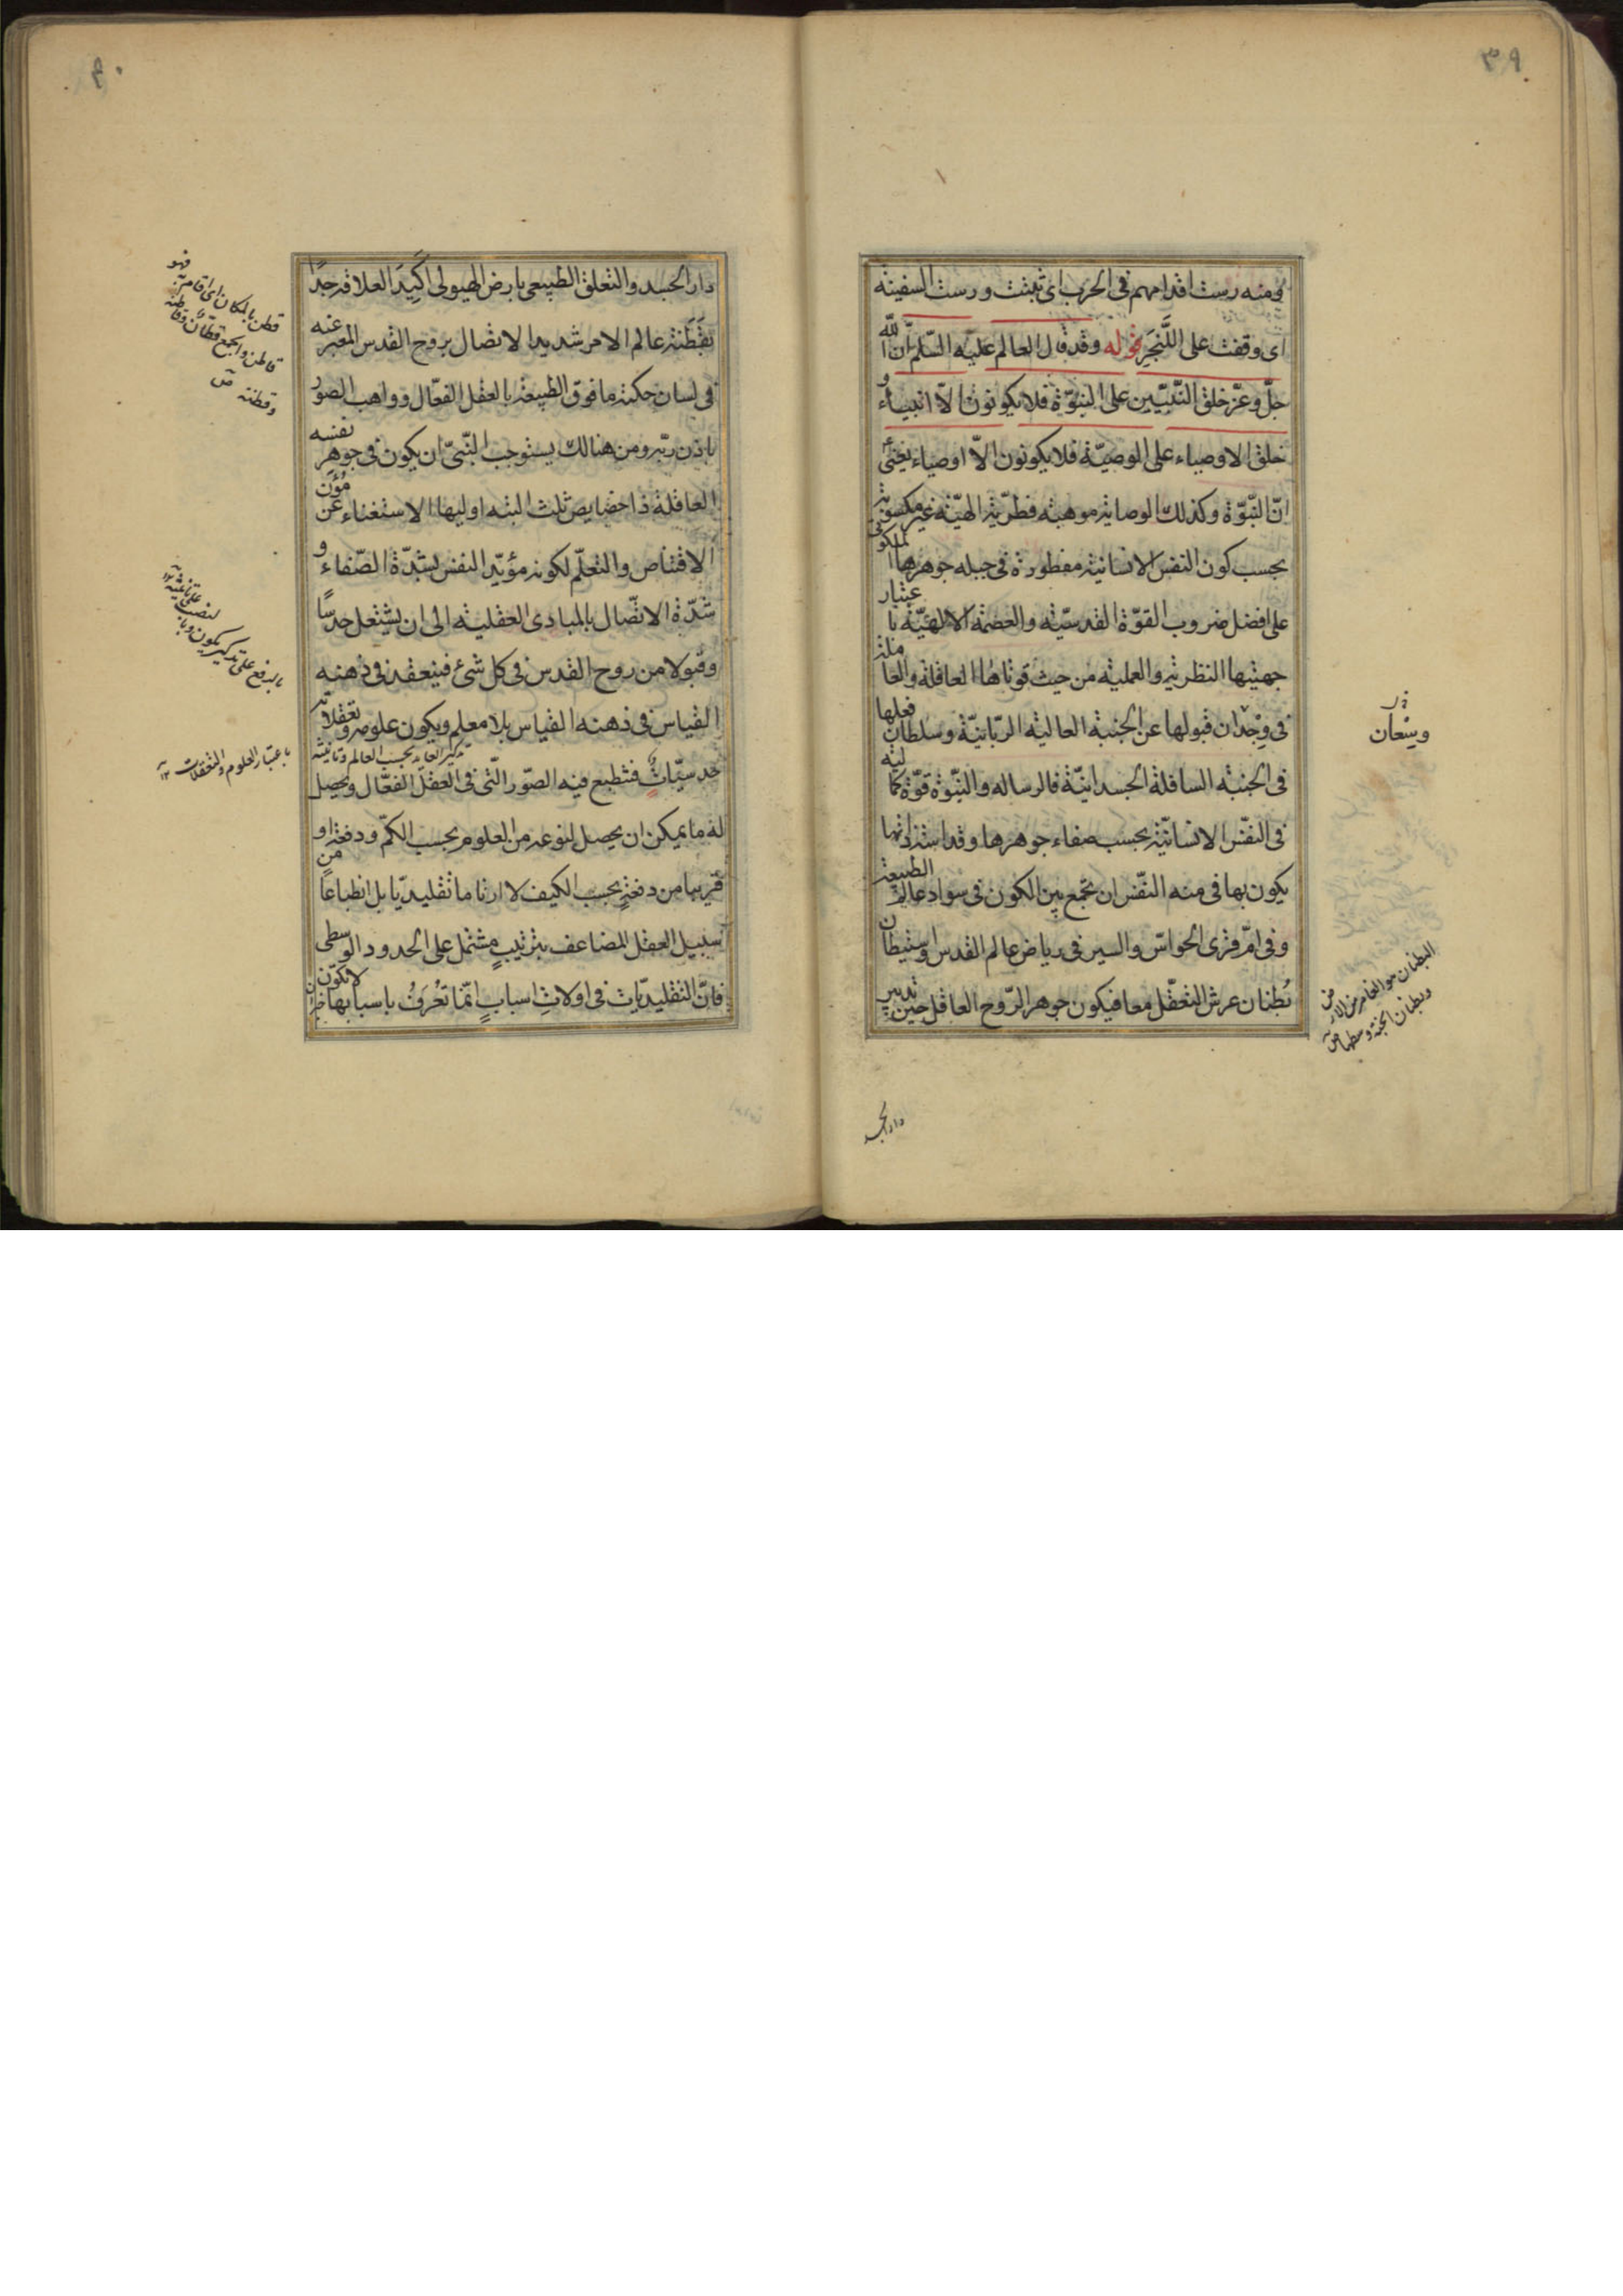 ٣٩
ومنه رست اقدامهم فى الحرب اى ثبتت ورست السفينة
اى وقفت على اللنجر قوله وقد قال العالم عليه السّلم انّ الله
جلّ وعزّ خلق النّبيّين على النبوّة فلا يكونون الّا انبياء و
خلق الاوصياء على الوصيّة فلا يكونون الّا اوصياء يعنى
انّ النّبوّة وكذلك الوصاية موهبة فطريّة الهيّة غير مكسوبة
بحسب كون النفس الانسانية مفطورة فى جبلة جوهرها الملكوتى
على افضل ضروب القوّة القدسيّة والعصمة الالهيّة باعتبار
جهتيها النظرية والعملية من حيث قوتاها العاقلة والعاملة
فى وجدان قبولها عن الجنبة العالية الربّانيّة وسلطان فعلها
فى الجنبة السافلة الجسدانيّة فالرسالة والنّبوّة قوّة كمالية
فى النفس الانسانيّة بحسب صفاء جوهرها وقداسة ذاتها
يكون بها فى منه النفس ان تجمع بين الكون فى سواد عالم الطبيعة
وفى امّ قرى الحواسّ والسير فى رياض عالم القدس واستيطان
بُطنان عرش التعقّل معا فيكون جوهر الرّوح العاقل حين تدبير
ويسْعان
البطنان هو الغامض من الارض
وبطنان الجنة وسطها ص
دار الجسد
٤٠
دار الجسد والتعلق الطبيعى بارض الهيولى اكيدَ العلاقة جدًا
بقَطَنة عالم الامر شديد الاتصال بروح القدس المعبر عنه
فى لسان حكمة ما فوق الطبيعة بالعقل الفعّال وواهب الصور
باذن ربّه ومن هنالك يستوجب النّبىّ ان يكون فى جوهر نفسه
العاقلة ذا خصايص ثلث البتة اوليها الاستغناء عن مُؤَن
الاقتناص والتعلّم لكونه مؤيّد النفس بشدّة الصّفاء و
شدّة الاتّصال بالمبادى العقلية الى ان يشتعل حدسًا
وقبولا من روح القدس فى كل شئ فينعقد فى ذهنه
القياس فى ذهنه القياس بلا معلم ويكون علومه وتعقلاته
حدسيّات فتطبع فيه الصّور الّتى فى العقل الفعّال ويحصل
له ما يمكن ان يحصل لنوعه من العلوم بحسب الكمّ ودفعة او
قريبا من دفعةٍ بحسب الكيف لا ارتاما تقليديّا بل انطباعا من
سبيل العقل المضاعف بترتيبٍ مشتمل على الحدود الوسطى
فانّ التقليديّات فى اولاتِ اسبابٍ انّما تُعْرَفُ باسبابها لا تكوّن
قطن بالمكان اى اقام به فهو
قاطن والجمع قطّان وقاطنة
وقطنة ص
بالرفع على تذكير يكون وبا
لنصب على تانيثه
باعتبار العلوم والتعقلات